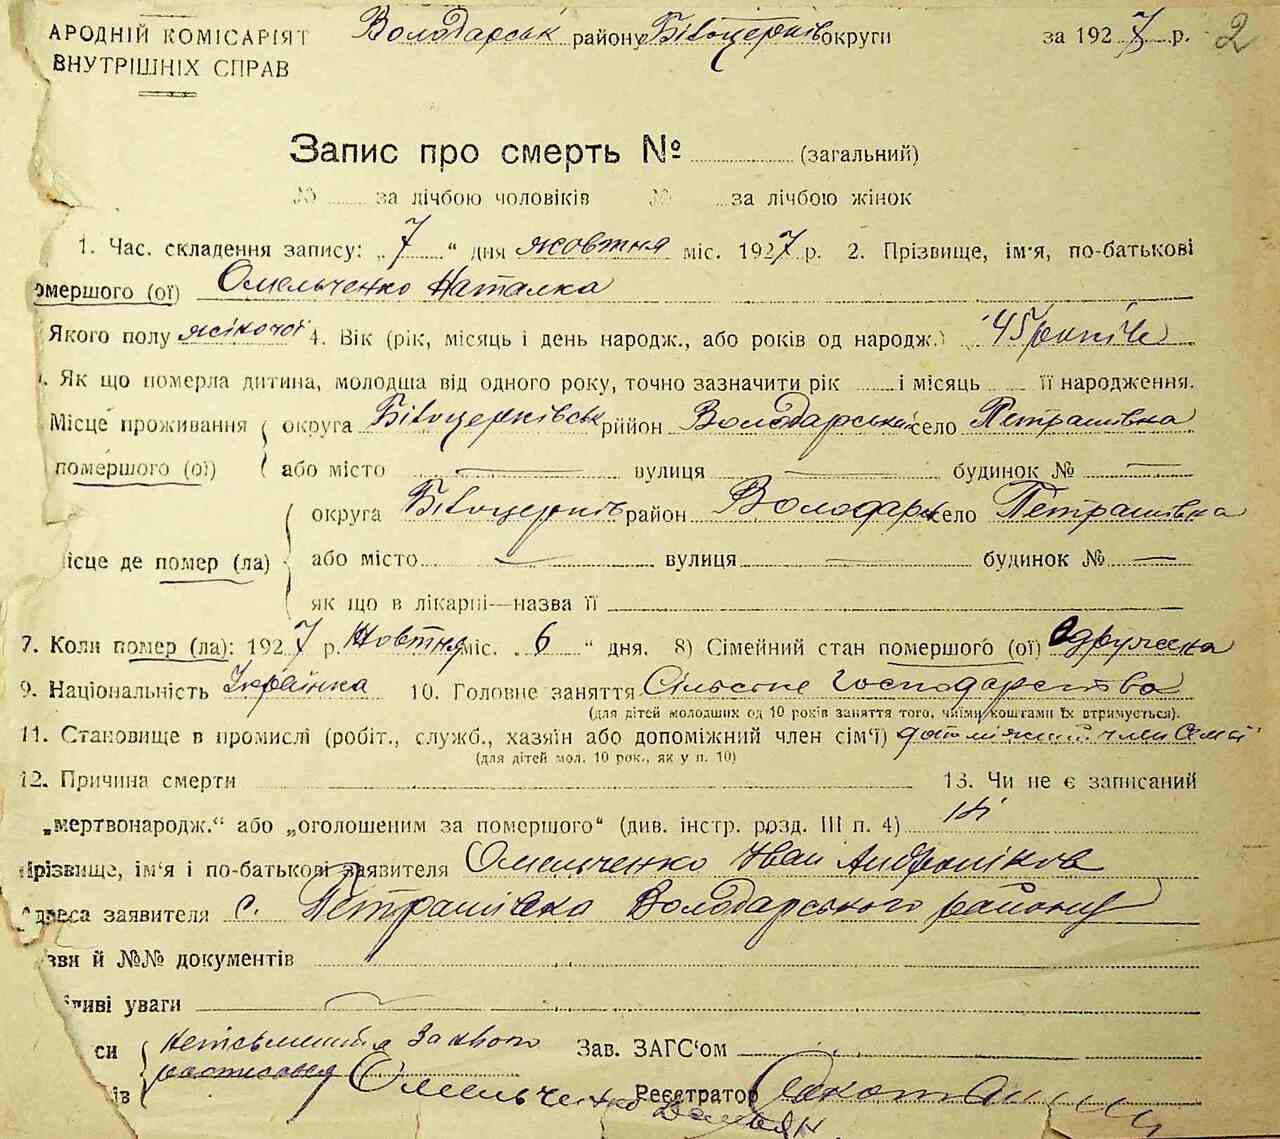 АРОДНІЙ КОМІСАРІЯТ Володарськ району Білоцерків округи за 1927 р. 2
ВНУТРІШНІХ СПРАВ
Запис про смерть № (загальний)
№ за лічбою чоловіків № за лічбою жінок
1. Час складення запису: „7“ дня жовтня міс. 1927 р. 2. Прізвище, ім'я, по-батькові
омершого (ої) Омельченко Наталка
Якого полу жіночої 4. Вік (рік, місяць і день народж., або років од народж.) 45 років
. Як що померла дитина, молодша від одного року, точно зазначити рік і місяць її народження.
Місце проживання округа Білоцерківськ рййон Володарський село Петрашівка
помершого (ої) або місто — вулиця — будинок № —
округа Білоцерків район Володарськ село Петрашівка
ісце де помер (ла) або місто — вулиця — будинок № —
як що в лікарні—назва її
7. Коли помер (ла): 1927 р. Жовтня міс. „6“ дня. 8) Сімейний стан помершого (ої) Одружена
9. Національність Українка 10. Головне заняття Сільське Господарства
(для дітей молодших од 10 років заняття того, чиїми коштами їх втримується).
11. Становище в промислі (робіт., служб., хазяїн або допоміжний член сім'ї) допоміжний член семї
(для дітей мол. 10 рок., як у п. 10)
12. Причина смерти 13. Чи не є записаний
„мертвонародж.“ або „оголошеним за помершого“ (див. інстр. розд. III п. 4) Ні
Прізвище, ім'я і по-батькові заявителя Омельченко Іван Андроніков
Адреса заявителя с. Петрашівка Володарського району
зви й №№ документів
ливі уваги
си неписьменний за нього Зав. ЗАГС'ом
ів росписався Омельченко Реєстратор